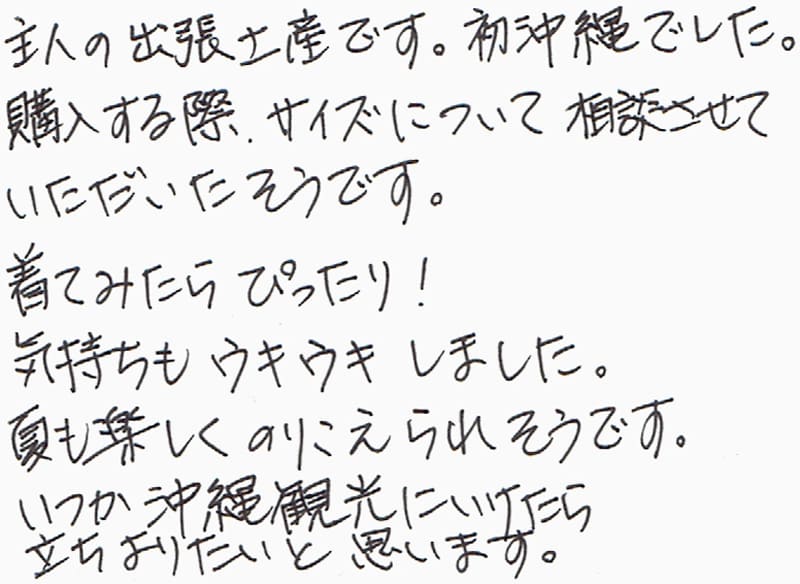 主人の出張土産です。初沖縄でした。
購入する際、サイズについて相談させて
いただいたそうです。
着てみたらぴったり!
気持ちもウキウキしました。
夏も楽しくのりこえられそうです。
いつか沖縄観光にいけたら
立ちよりたいと思います。